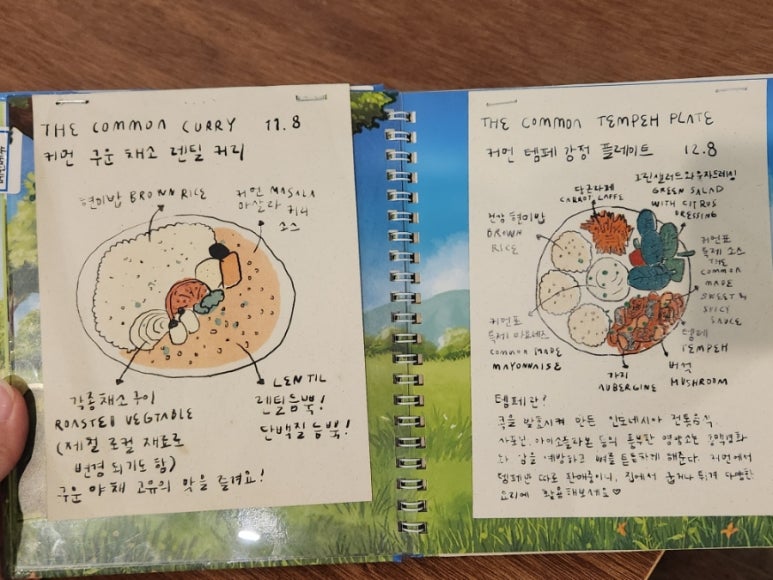 THE COMMON CURRY 11.8
커먼 구운 채소 렌틸 커리
현미밥 BROWN RICE
커먼 MASALA
마살라 커리
소스
각종 채소 구이
ROASTED VEGTABLE
(제철 로컬 재료로
변경 되기도 함)
구운 야채 고유의 맛을 즐겨요!
LENTIL
렌틸듬뿍!
단백질 듬뿍!
THE COMMON TEMPEH PLATE
커먼 템페 강정 플레이트 12.8
당근라페
CARROT LAFFE
그린샐러드와 유자드레싱
GREEN SALAD
WITH CITRUS
DRESSING
현미밥
BROWN
RICE
커먼표
특제 소스
THE
COMMON
MADE
SWEET &
SPICY
SAUCE
커먼표
특제 마요네즈
COMMON MADE
MAYONNAISE
가지
AUBERGINE
템페
TEMPEH
버섯
MUSHROOM
템페란?
콩을 발효시켜 만든 인도네시아 전통음식.
사포닌, 아이소플라본 등의 풍부한 영양소는 동맥경화
와 암을 예방하고 뼈를 튼튼하게 해준다. 커먼에서
템페만 따로 판매중이니, 집에서 굽거나 튀겨 다양한
요리에 활용해보세요♡